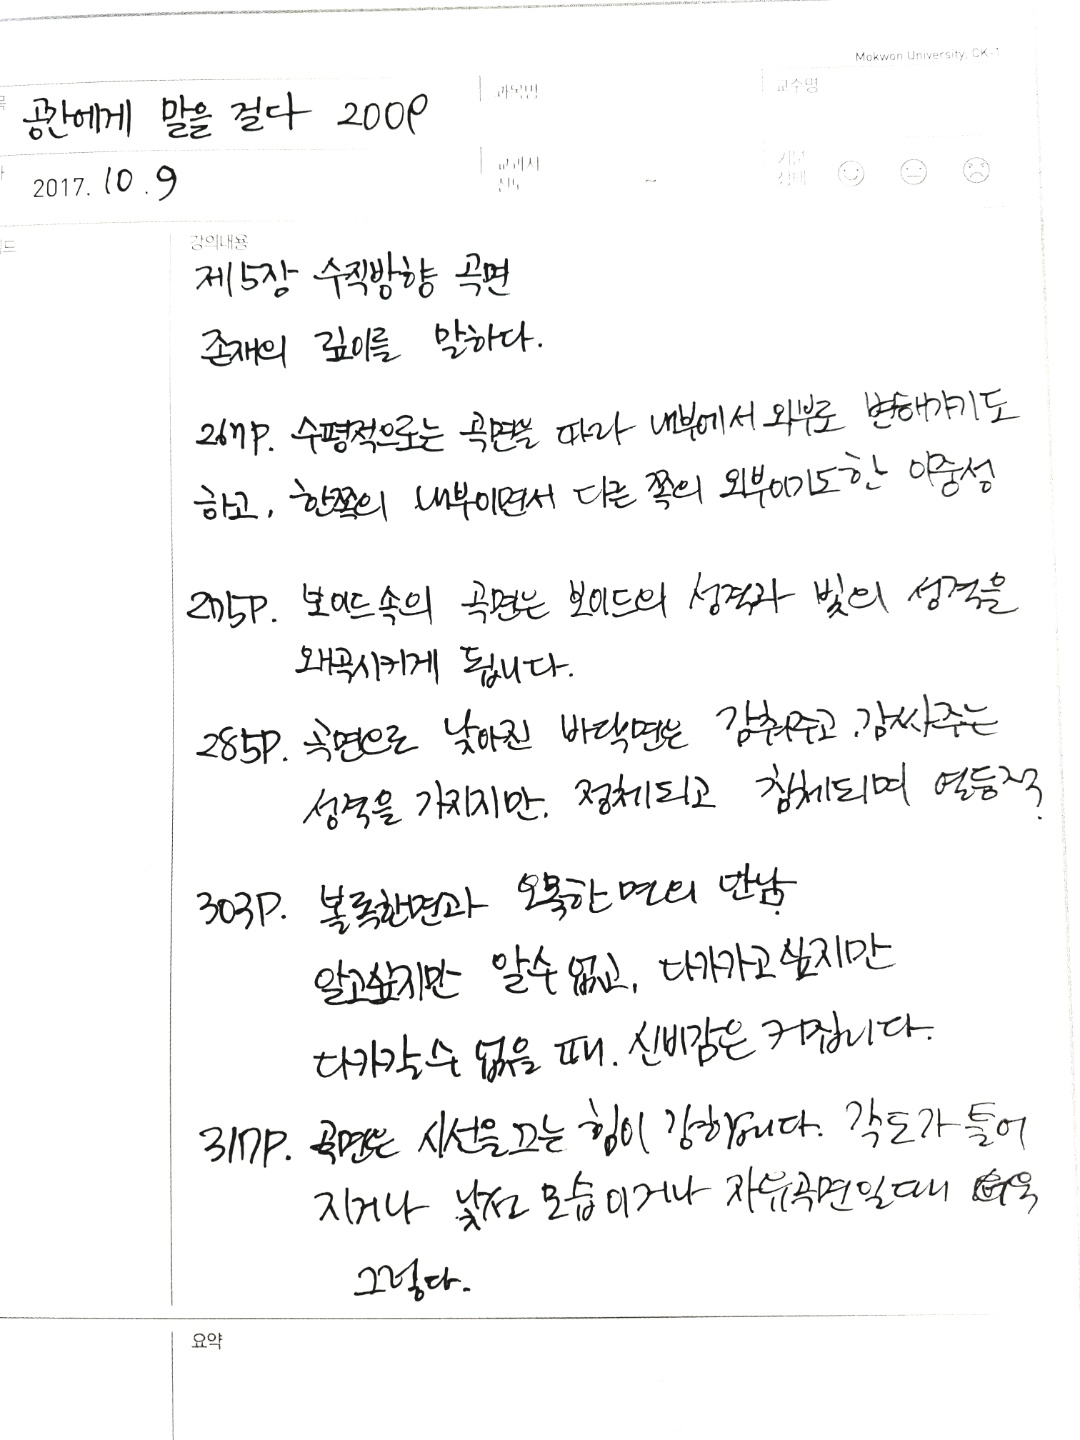 Mokwon University, CK-1
공간에게 말을 걸다 200P
과목명
교수명
2017. 10. 9
교과서
진도
~
기분
상태
강의내용
제15장 수직방향 곡면
존재의 깊이를 말하다.
267P. 수평적으로는 곡면을 따라 내부에서 외부로 변해가기도
하고, 한쪽의 내부이면서 다른 쪽의 외부이기도한 이중성
275P. 보이드속의 곡면은 보이드의 성격과 빛의 성격을
왜곡시키게 됩니다.
285P. 곡면으로 낮아진 바닥면은 감춰주고, 감싸주는
성격을 가지지만, 정체되고 침체되며 열등적.
303P. 볼록한면과 오목한면의 만남
알고싶지만 알수 없고, 다가가고 싶지만
다가갈수 없을 때, 신비감은 커집니다.
317P. 곡면은 시선을 끄는 힘이 강합니다. 각도가 틀어
지거나 낯선 모습이거나 자유곡면일때 더욱
그렇다.
요약